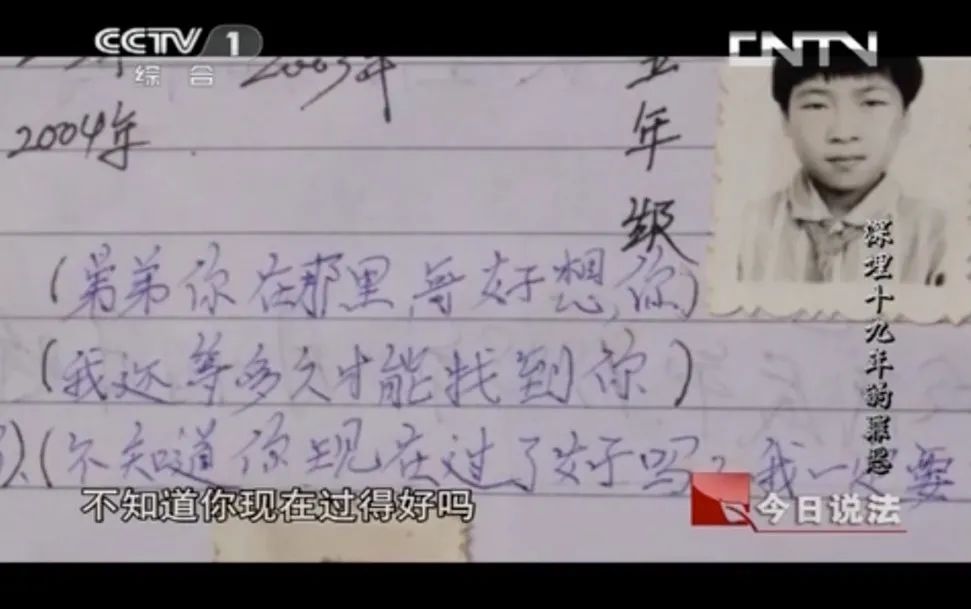 CCTV 1
综合
CNTV
2003年
五年级
2004年
(弟弟你在那里哥好想你)
(我还等多久才能找到你)
(不知道你现在过了好吗?我一定要
不知道你现在过得好吗
深埋十九年的罪恶
今日说法